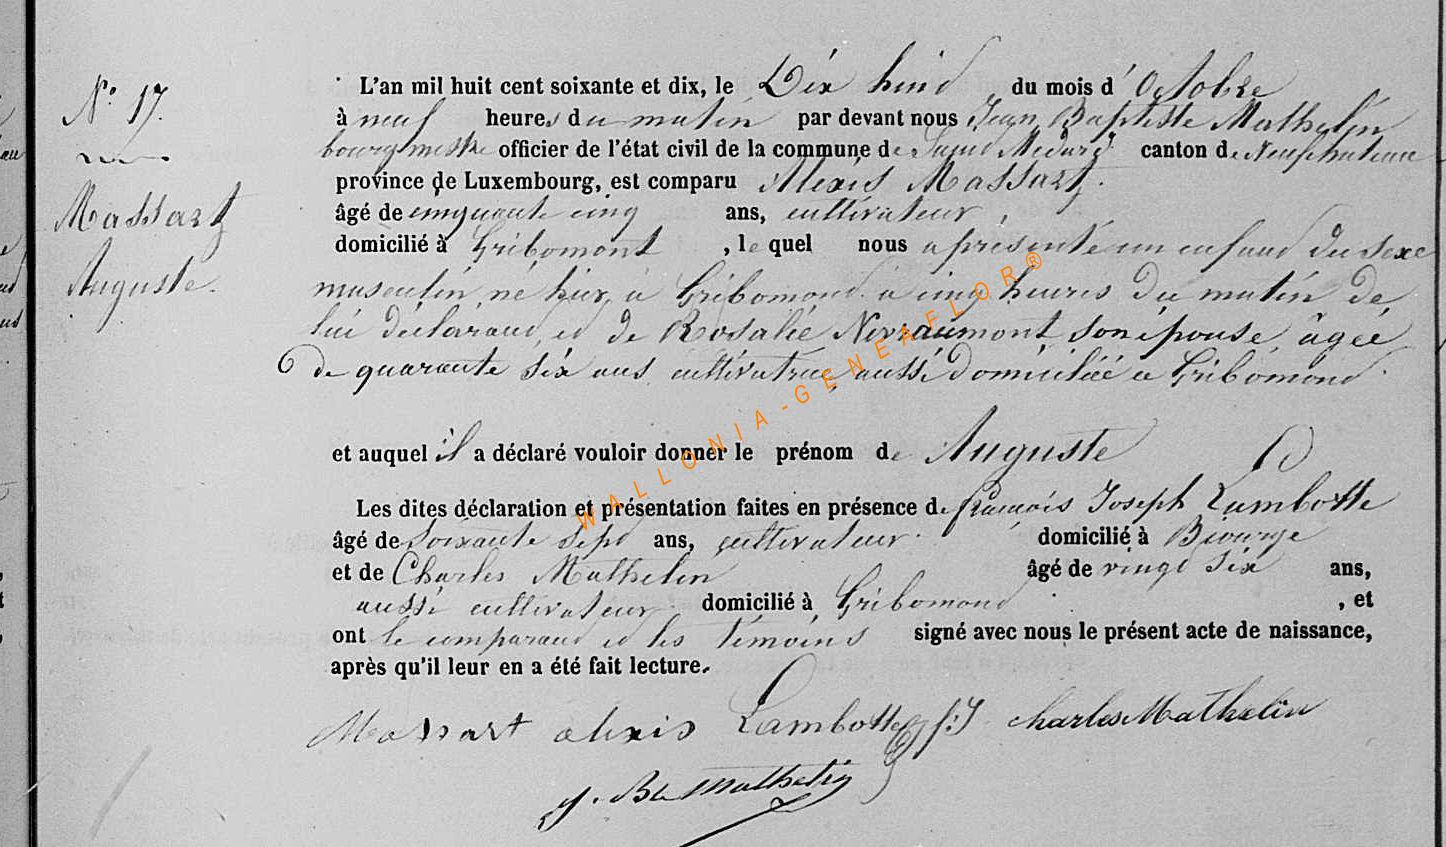 N° 17.
Massart
Auguste.
L'an mil huit cent soixante et dix, le Dix huit du mois d'Octobre
à neuf heures du matin par devant nous Jean Baptiste Mathelin
bourgmestre officier de l'état civil de la commune de Saint Médard canton de Neufchateau
province de Luxembourg, est comparu Alexis Massart.
âgé de cinquante cinq ans, cultivateur,
domicilié à Gribomont, lequel nous a présenté un enfant du sexe
masculin, né hier, à Gribomont à cinq heures du matin de
lui déclarant, et de Rosalie Noiraumont, son épouse, âgée
de quarante six ans cultivatrice, aussi domiciliée à Gribomont.
et auquel il a déclaré vouloir donner le prénom de Auguste
Les dites déclaration et présentation faites en présence de françois Joseph Lambotte
âgé de soixante sept ans, cultivateur. domicilié à Biourge
et de Charles Mathelin âgé de vingt six ans,
aussi cultivateur domicilié à Gribomont, et
ont le comparant et les témoins signé avec nous le présent acte de naissance,
après qu'il leur en a été fait lecture.
Massart alexis Lambotte f:J charles Mathelin
J. Bte Mathelin
WALLONIA-GENEAFLOR®